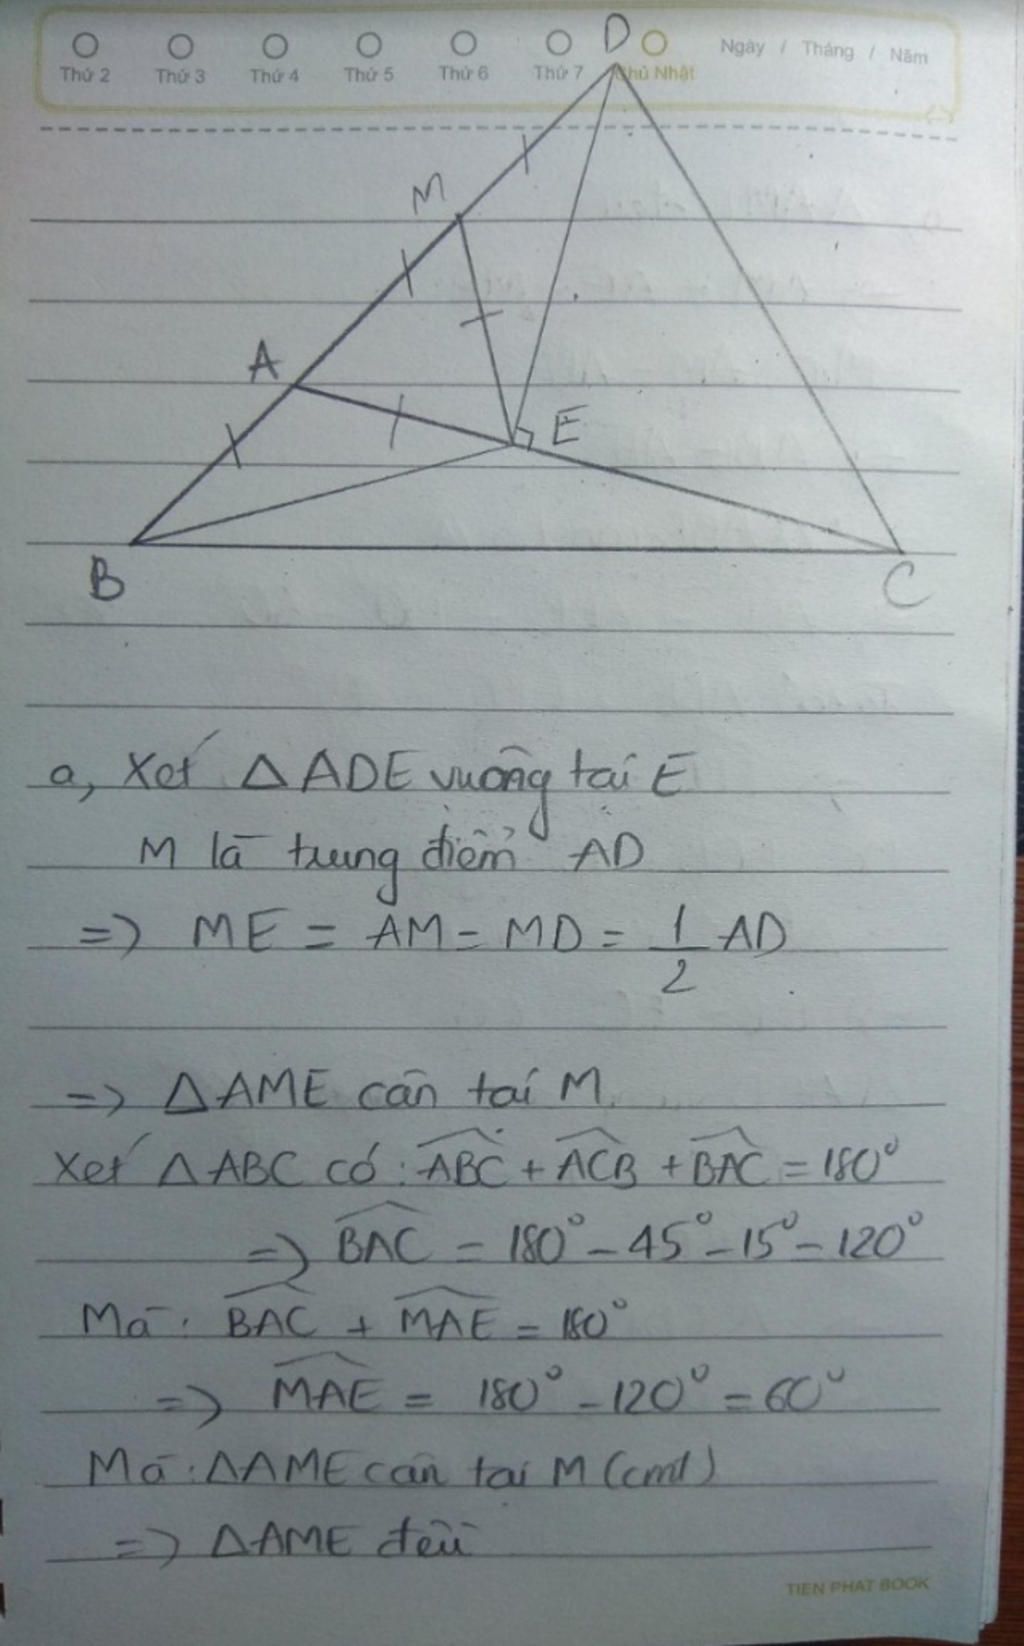 Thứ 2 Thứ 3 Thứ 4 Thứ 5 Thứ 6 Thứ 7 Chủ Nhật Ngày / Tháng / Năm
D
M
A
E
B
C
a, Xét △ADE vuông tại E
M là trung điểm AD
=> ME = AM = MD = 1/2 AD
=> △AME cân tại M
Xét △ABC có: ABC + ACB + BAC = 180°
=> BAC = 180° - 45° - 15° - 120°
Mà: BAC + MAE = 180°
=> MAE = 180° - 120° = 60°
Mà: △AME cân tại M (cmt)
=> △AME đều
TIEN PHAT BOOK